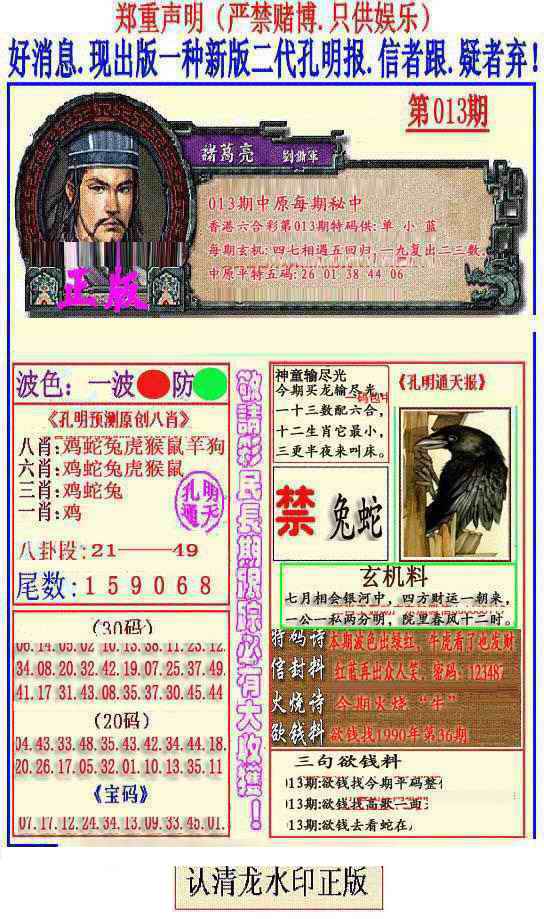 郑重声明（严禁赌博.只供娱乐）
好消息.现出版一种新版二代孔明报.信者跟.疑者弃！
第013期
諸葛亮 劉鋤軍
013期中原每期秘中
香港六合彩第013期特码供:单 小 蓝
每期玄机:四七相遇五回归,一九复出二三数.
中原平特五码:26 01 38 44 06
正版
波色：一波 防
《孔明预测原创八肖》
八肖:鸡蛇兔虎猴鼠羊狗
六肖:鸡蛇兔虎猴鼠
三肖:鸡蛇兔
一肖:鸡
孔明通天
八卦段:21——49
尾数:159068
(30码)
06.14.05.02 10.13.38.11 23.12
34.08.20.32.42.19.07.25.37.49.
41.17.31.43.08.35.37.30.45.44
(20码)
04.43.33.48.35.43.42.34.44.18.
20.26.17.05.32.01.10.13.35.11
《宝码》
07.17.12.24.34.13.09.33.45.01.
敬請彩民長期跟踪必有大收獲！
神童输尽光
今期买龙输尽光,
一十三数配六合,
十二生肖它最小,
三更半夜来叫床。
《孔明通天报》
禁 兔蛇
玄机料
七月相会银河中，四方财运一朝来，
一公一私两分明，院里春风十二时。
特码诗 本期波色出绿红，牛虎看了也发财
信封料 红蓝再出众人笑。密码：123487
火烧诗 今期火烧“牛”
欲钱料 欲钱找1990年第36期
三句欲钱料
013期:欲钱找今期平码整
013期:欲钱找高歌二曲
013期:欲钱去看蛇在
认清龙水印正版